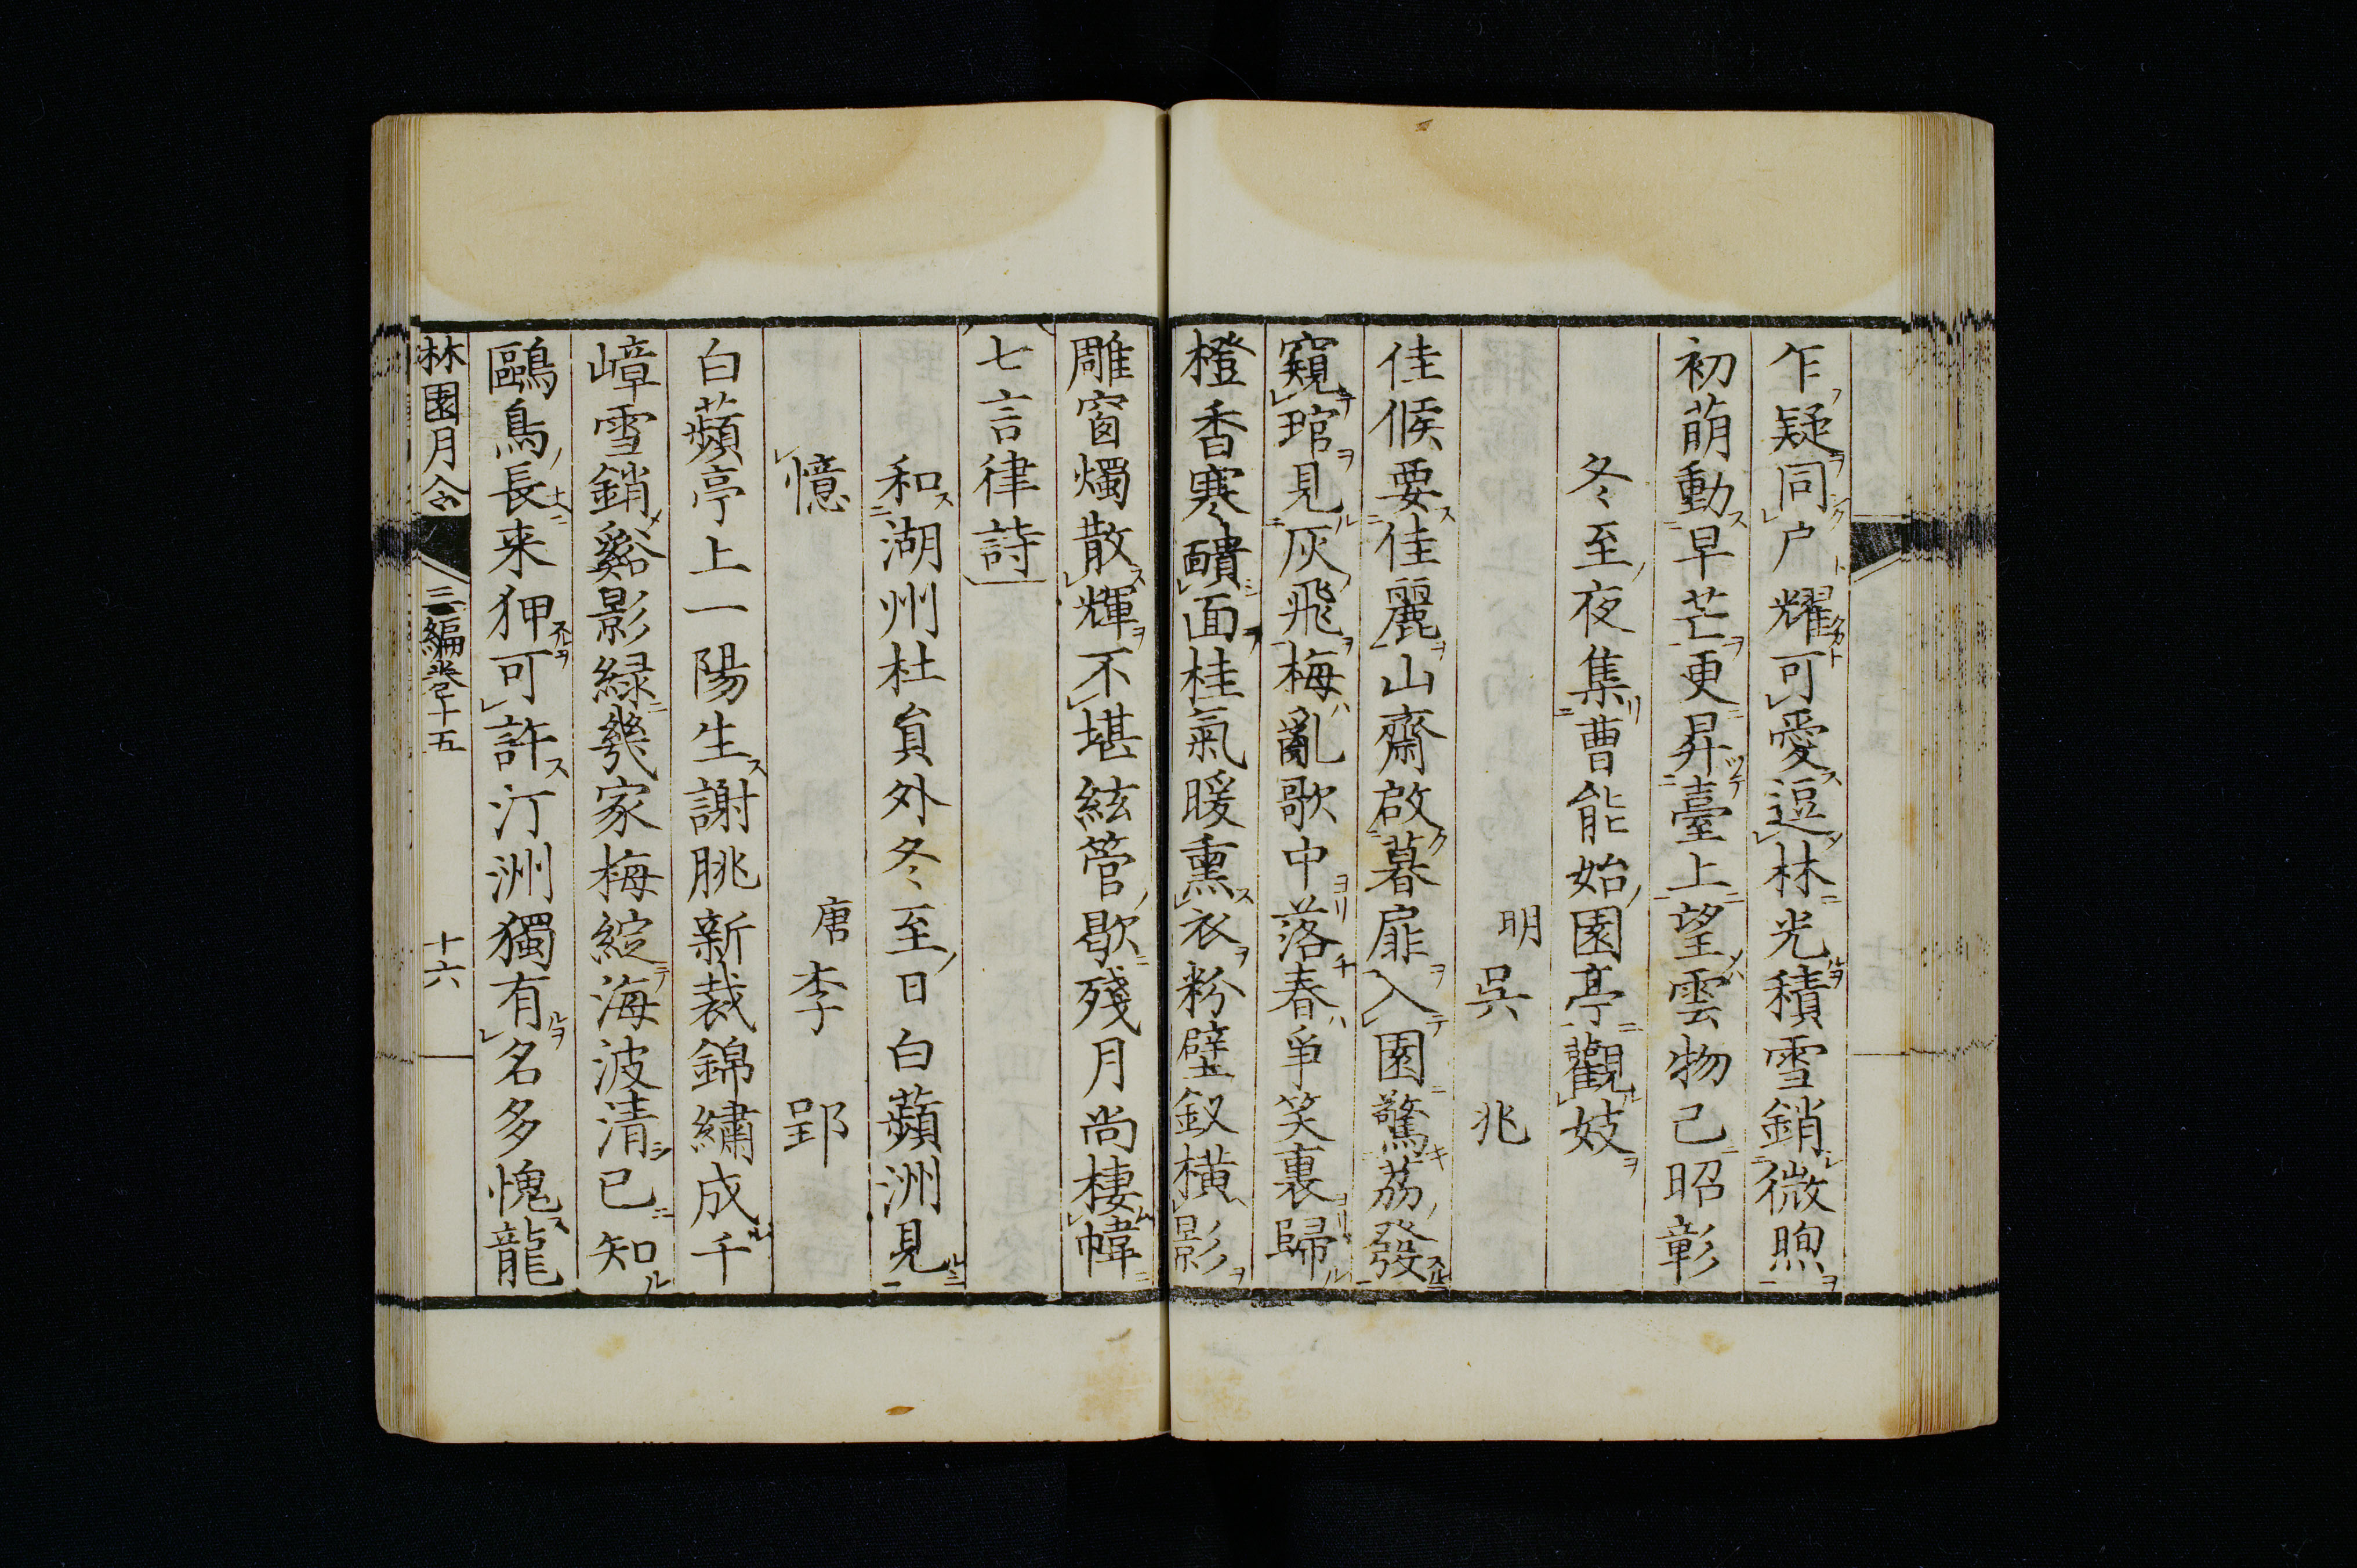 乍疑同戸耀可愛逗林光積雪銷微煦
初萠動早芒更昇臺上望雲物已昭彰
冬至夜集曹能始園亭觀妓
明 吳兆
佳候要佳麗山齋啟暮扉入園驚荔發
窺琯見灰飛梅亂歌中落春爭笑裏歸
橙香寒靧面桂氣暖熏衣粉壁釵橫影
雕窗燭散輝不堪絃管歇殘月尚棲幃
七言律詩
和湖州杜貟外冬至日白蘋洲見
憶 唐 李郢
白蘋亭上一陽生謝朓新裁錦繡成千
嶂雪銷谿影緑幾家梅綻海波清已知
鷗鳥長来狎可許汀洲獨有名多愧龍
林園月令 三編卷十五 十六